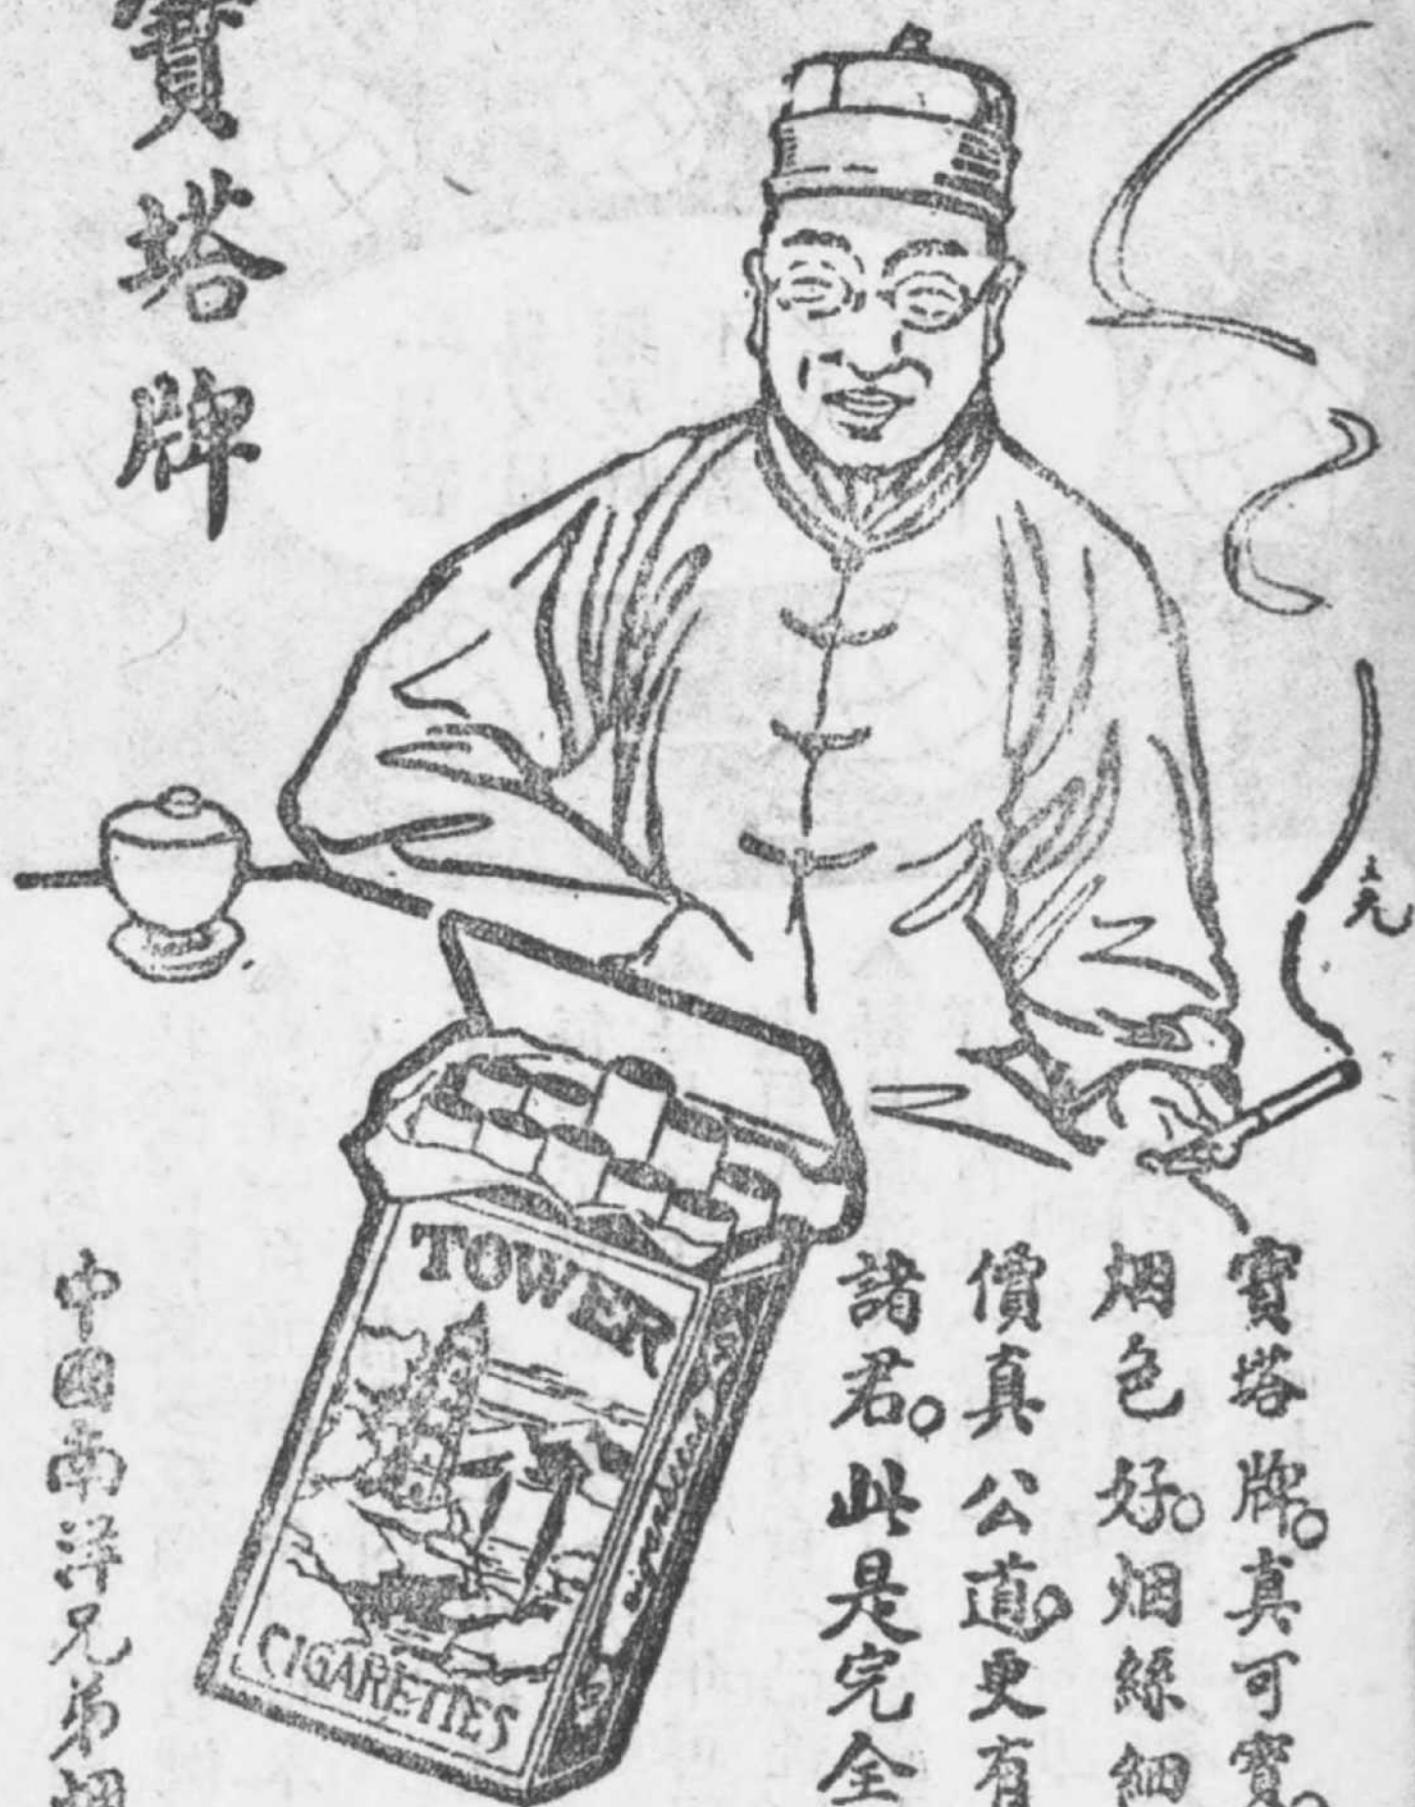 寶塔牌
TOWER
CIGARETTES
Cigarettes
寶塔牌。真可寶。
烟色好。烟絲細
價真公道。更有
諸君。此是完全
中国南洋兄弟烟